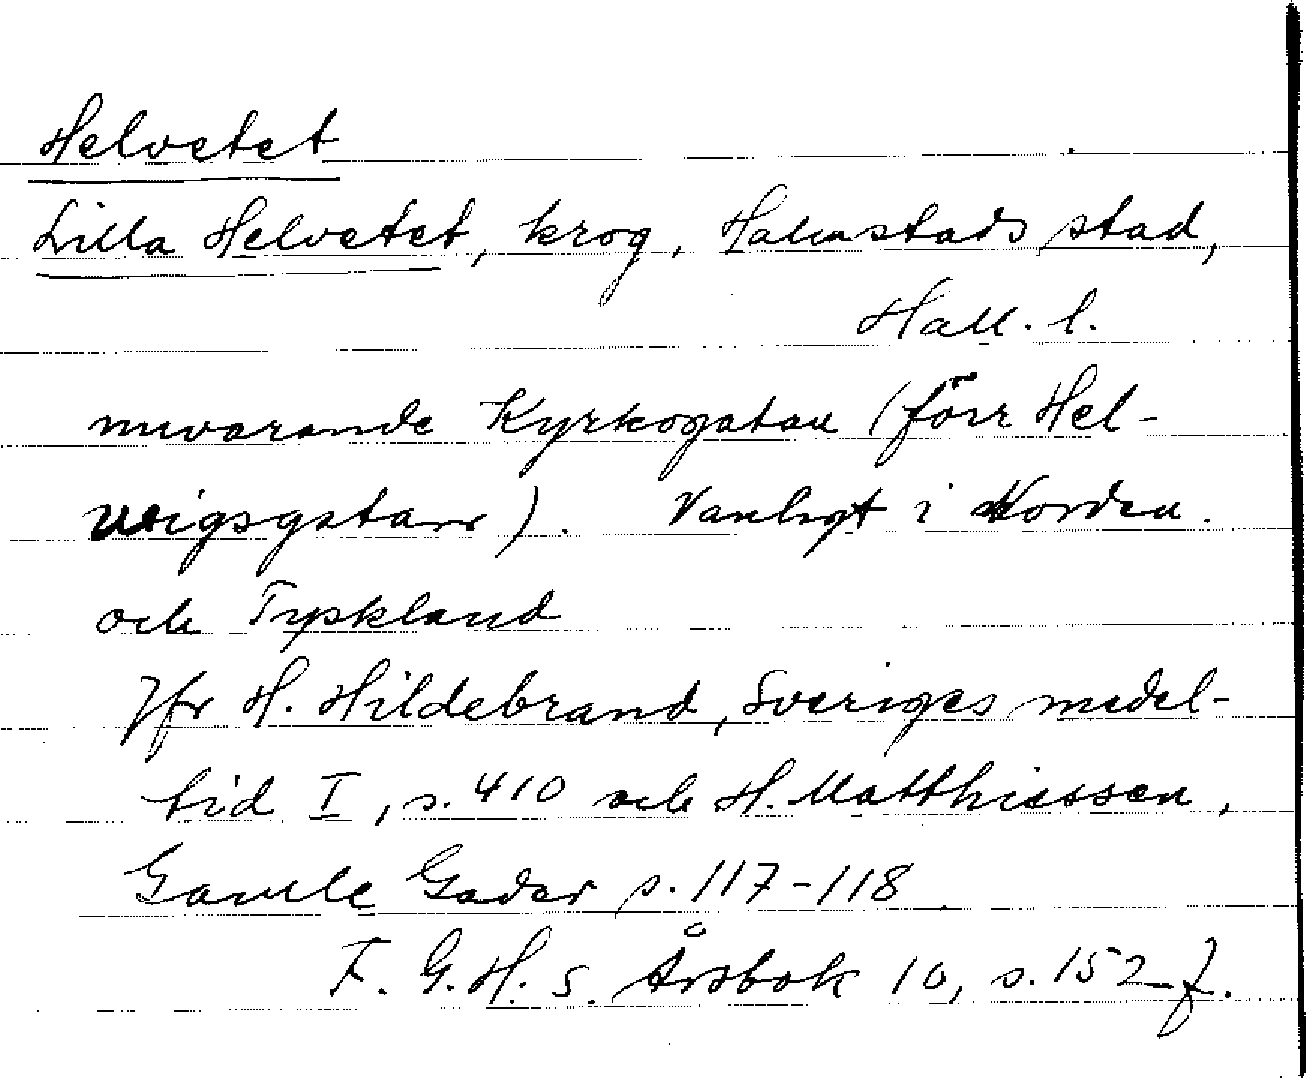 Helvetet
Lilla Helvetet, krog, Halmstads stad,
Hall. l.
nuvarande Kyrkogatan (förr Hel-
wigsgatan). Vanligt i Norden.
och Tyskland
Jfr H. Hildebrand, Sveriges medel-
tid I, s. 410 och H. Matthiessen,
Gamle Gader s. 117-118
F. G. H. S. Årsbok 10, s. 152 f.